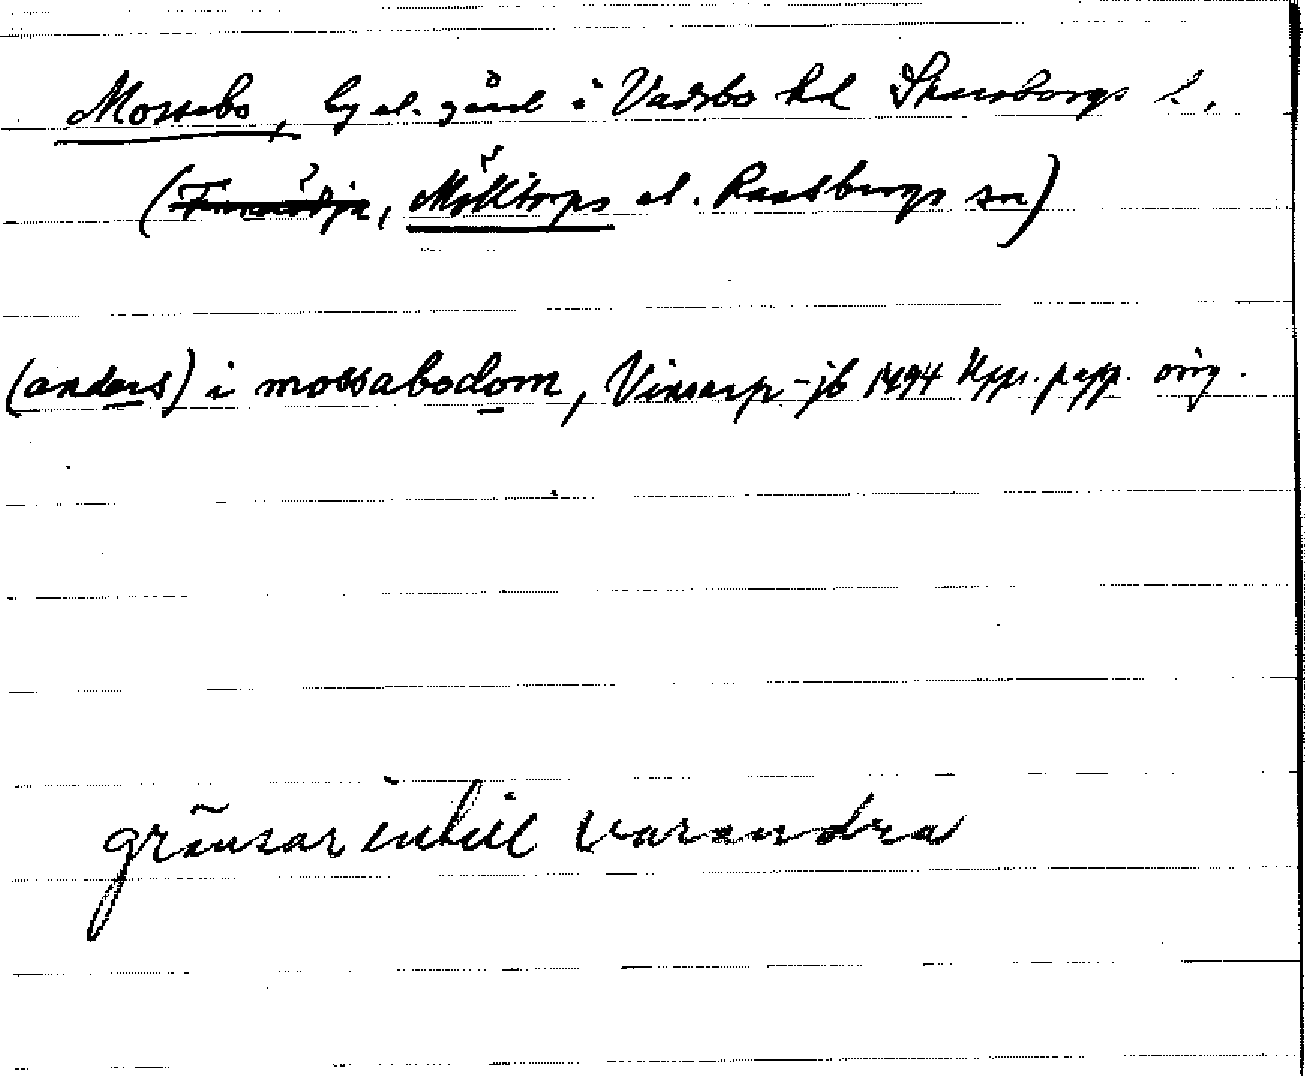 Mossebo, by el. gård i Vadsbo hd Skaraborgs l.
(Finnerödja, Mölltorps el. Ransbergs sn)
(anders) i mossabodom, Vinsarp-jb 1494 Upps. papp. orig.
gränsar intill varandra